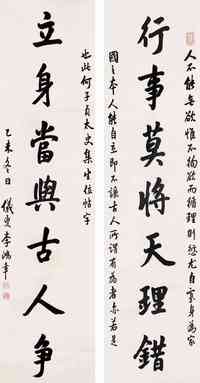 人不能無欲惟不徇欲而循理則愆尤自寡身為家
國之本人能自立即不讓古人所謂有為者亦若是
行事莫將天理錯
立身當與古人爭
也此何子貞太史集坐位帖字
乙未冬日
儀叟李鴻章